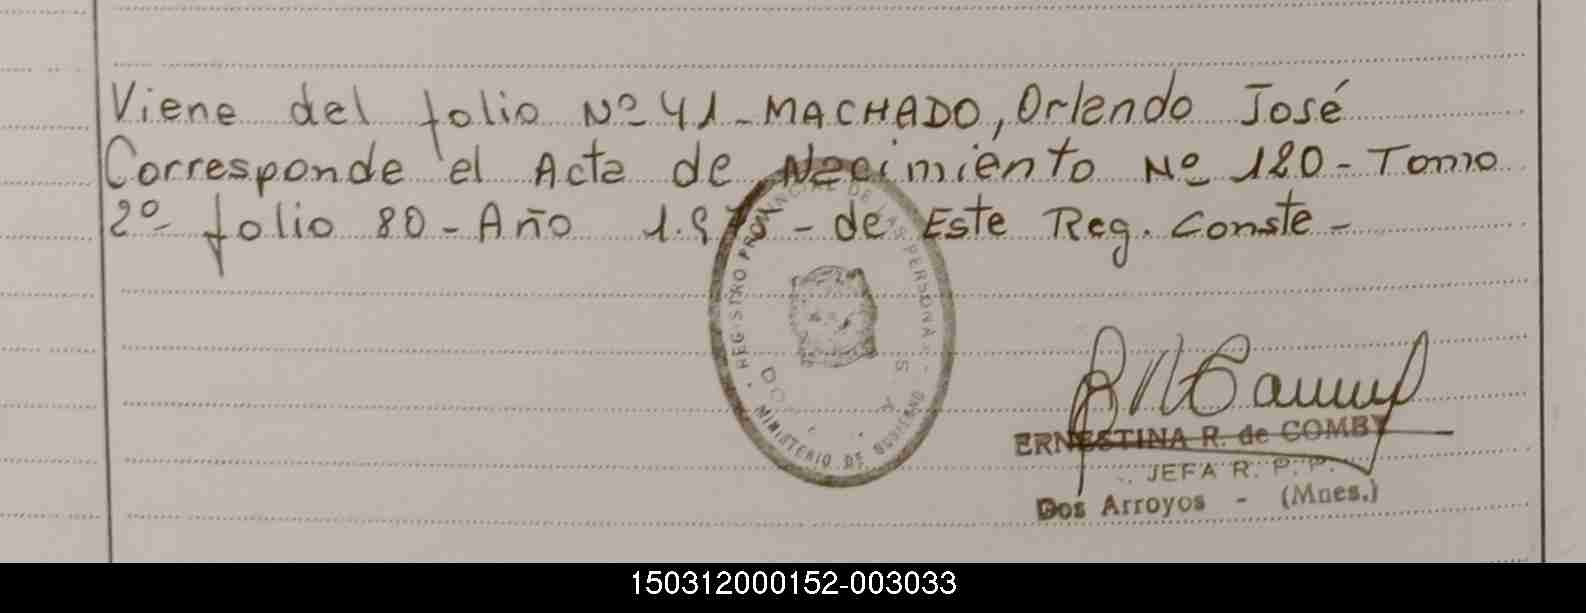 Viene del folio Nº 41 - MACHADO, Orlando José
Corresponde el Acta de Nacimiento Nº 120 - Tomo
2º folio 80 - Año - de Este Reg. Conste -
REGISTRO PROVINCIAL DE LAS PERSONAS
MINISTERIO DE GOBIERNO
ERNESTINA R. de COMBY
JEFA R. P. P.
Dos Arroyos - (Mnes.)
150312000152-003033